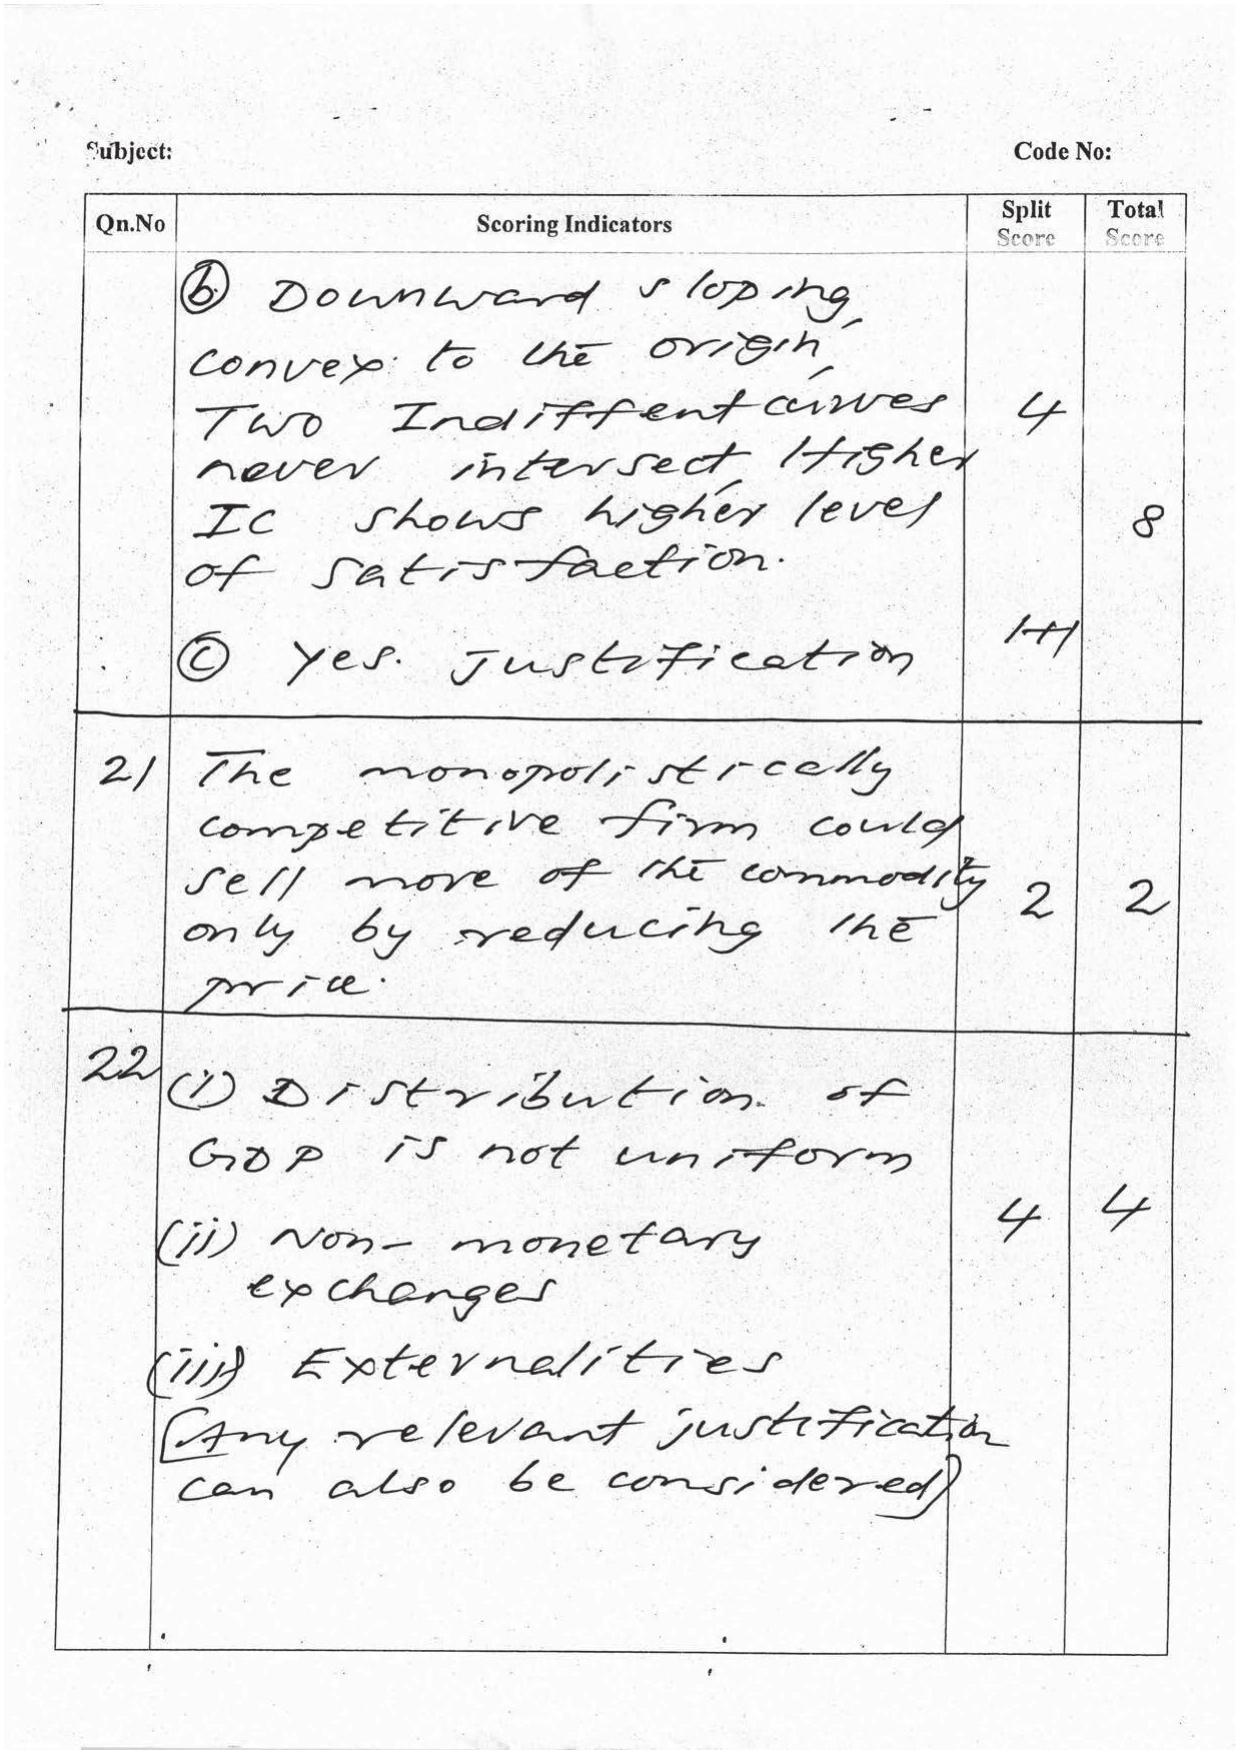 Subject:
Code No:
Qn.No
Scoring Indicators
Split Score
Total Score
(b) Downward sloping,
convex to the origin,
Two Indiffent curves
never intersect, Higher
IC shows higher level
of satisfaction.
4
8
(c) Yes. Justification
1+1
21
The monopolistically
competitive firm could
sell more of the commodity
only by reducing the
price.
2
2
22
(i) Distribution of
GDP is not uniform
(ii) Non-monetary
exchanges
(iii) Externalities
(Any relevant justification
can also be considered)
4
4